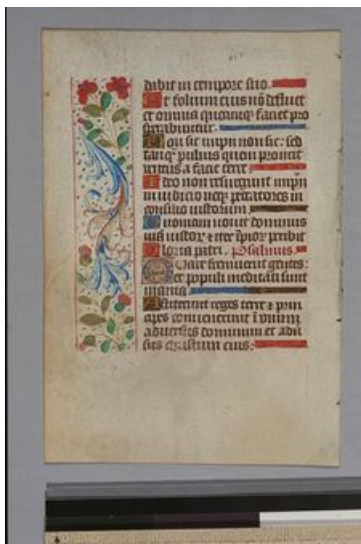 dabit in tempore suo.
Et folium eius nō defluet
et omnia quecunq; faciet pro
sperabuntur.
Non sic impii non sic: sed
tanq̄ puluis quem proiicit
uentus a facie terre
Ideo non resurgunt impii
in iudicio neq; peccatores in
consilio iustorum.
Quoniam nouit dominus
uiā iustoꝝ & iter īpioꝝ peribit
Gloria patri. Psalmus.
Quare fremuerunt gentes:
et populi meditati sunt
inania.
Astiterunt reges terre & prin
cipes conuenerunt ī unum
aduersus dominum et aduer
sus christum eius: